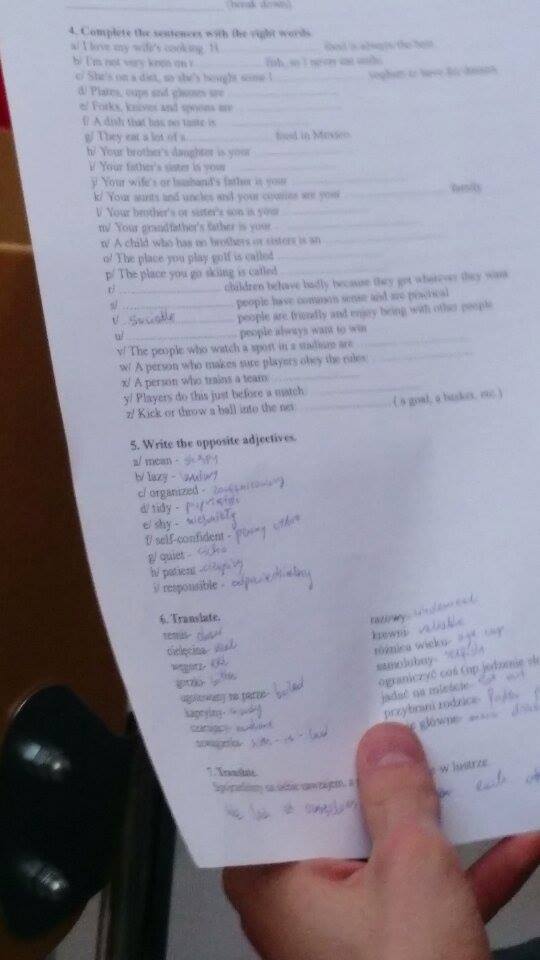 (break down)
4. Complete the sentences with the right words.
a/ I love my wife's cooking. H food is always the best.
b/ I'm not very keen on r fish, so I never eat sushi.
c/ She's on a diet, so she's bought some l yoghurt to have for dessert.
d/ Plates, cups and glasses are
e/ Forks, knives and spoons are
f/ A dish that has no taste is
g/ They eat a lot of s food in Mexico.
h/ Your brother's daughter is your
i/ Your father's sister is your
j/ Your wife's or husband's father is your
k/ Your aunts and uncles and your cousins are your family
l/ Your brother's or sister's son is your
m/ Your grandfather's father is your
n/ A child who has no brothers or sisters is an
o/ The place you play golf is called
p/ The place you go skiing is called
r/ children behave badly because they get whatever they want
s/ people have common sense and are practical
t/ sociable people are friendly and enjoy being with other people
u/ people always want to win
v/ The people who watch a sport in a stadium are
w/ A person who makes sure players obey the rules:
x/ A person who trains a team:
y/ Players do this just before a match:
z/ Kick or throw a ball into the net: ( a goal, a basket, etc.)
5. Write the opposite adjectives.
a/ mean - skąpy
b/ lazy - leniwy
c/ organized - zorganizowany
d/ tidy -
e/ shy - nieśmiały
f/ self-confident - pewny siebie
g/ quiet - cicho
h/ patient - cierpliwy
i/ responsible - odpowiedzialny
6. Translate.
remis- draw
cielęcina- veal
węgorz- eel
gorzki- bitter
ugotowany na parze- boiled
kapryśny- moody
czarujący-
szwagierka- sister-in-law
razowy- wholemeal
krewni-
różnica wieku- age gap
samolubny- selfish
ograniczyć coś (np jedzenie
jadać na mieście- eat out
przybrani rodzice-
główne- main
7. Translate.
w lustrze.
We look at ourselves each